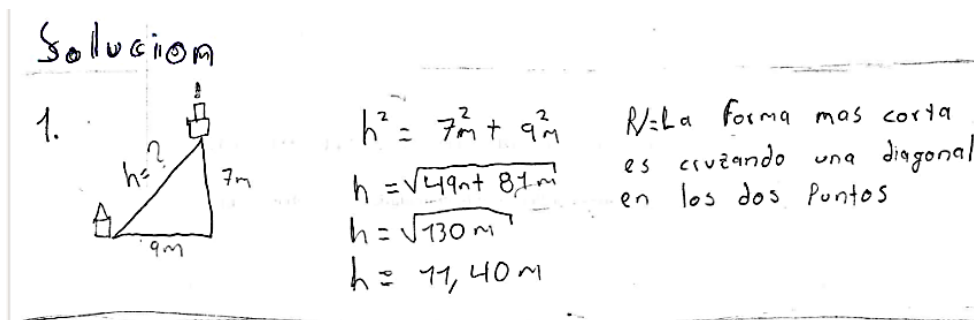 Solucion
1.
h=?
7m
9m
h² = 7²m + 9²m
h = √49m + 81m
h = √130 m
h = 11,40 m
R/=La forma mas corta
es cruzando una diagonal
en los dos Puntos